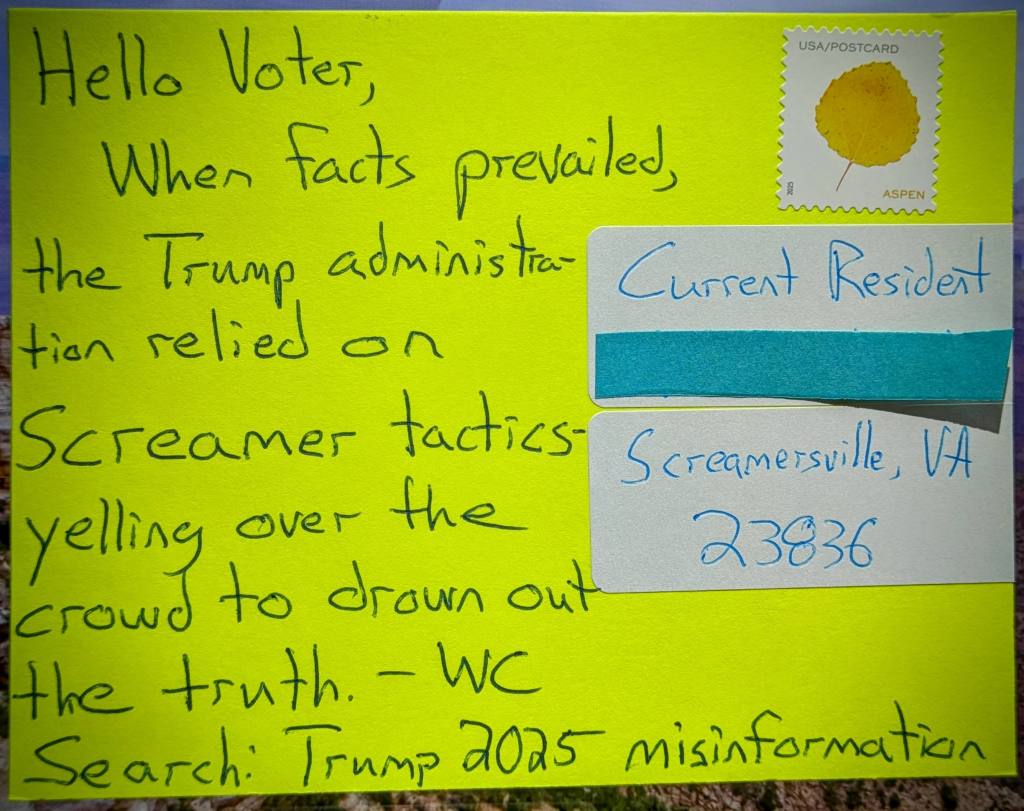 Hello Voter,
When facts prevailed,
the Trump administra-
tion relied on
Screamer tactics-
yelling over the
crowd to drown out
the truth. - WC
Search: Trump 2025 misinformation
USA/POSTCARD
2025
ASPEN
Current Resident
Screamersville, VA
23836